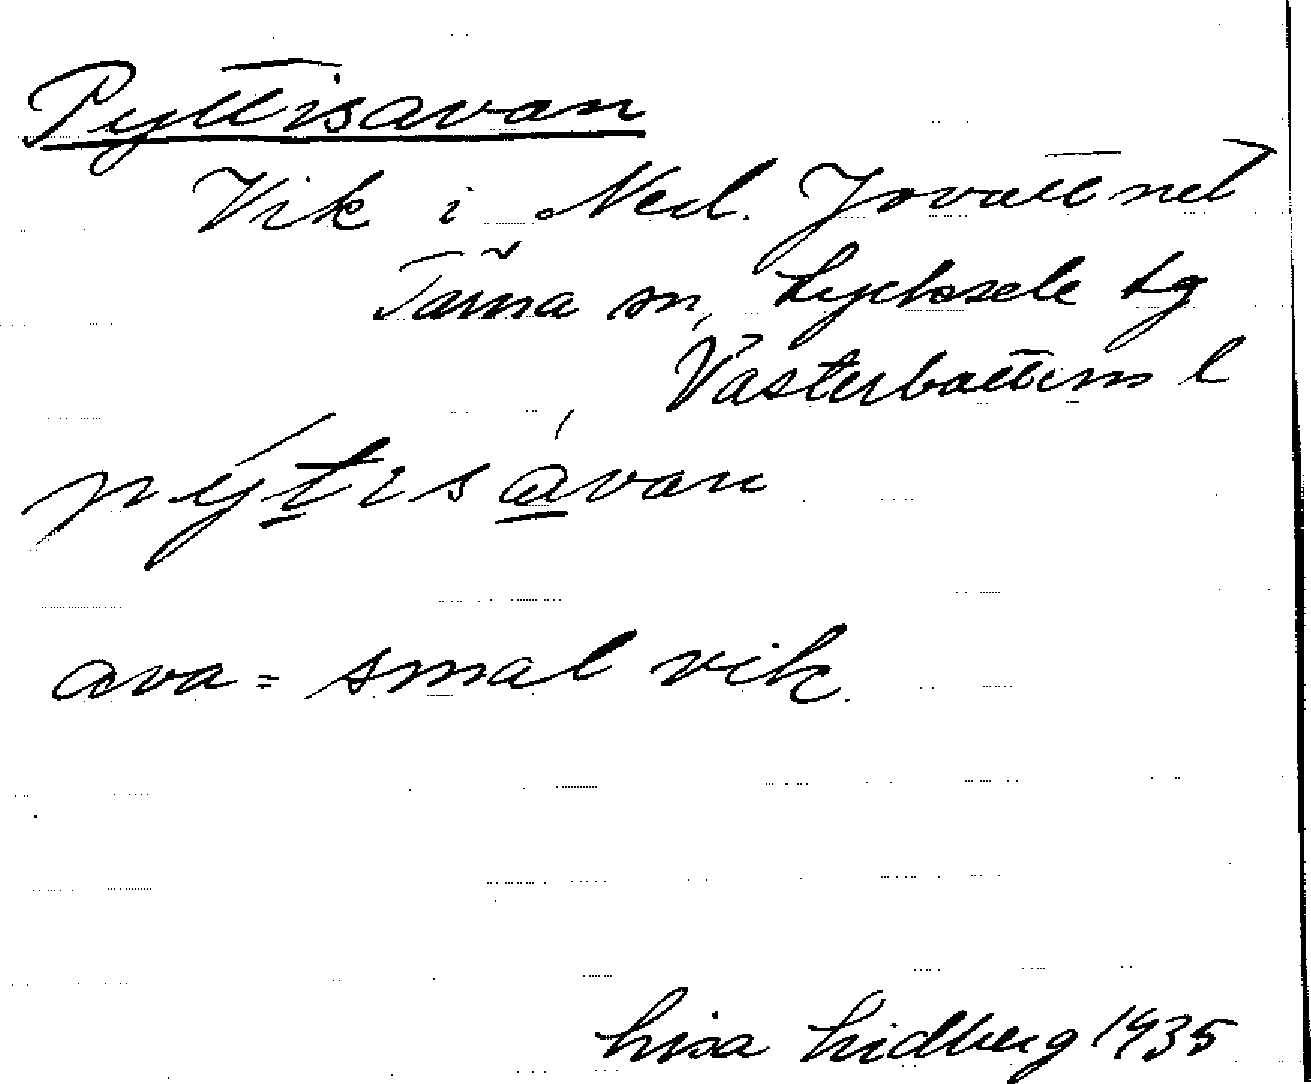 Pyttisavan
Vik i Ned. Jovattnet
Tärna sn, Lycksele lg
Västerbottens l
pýtisávan
ava = smal vik.
Lisa Lidberg 1935